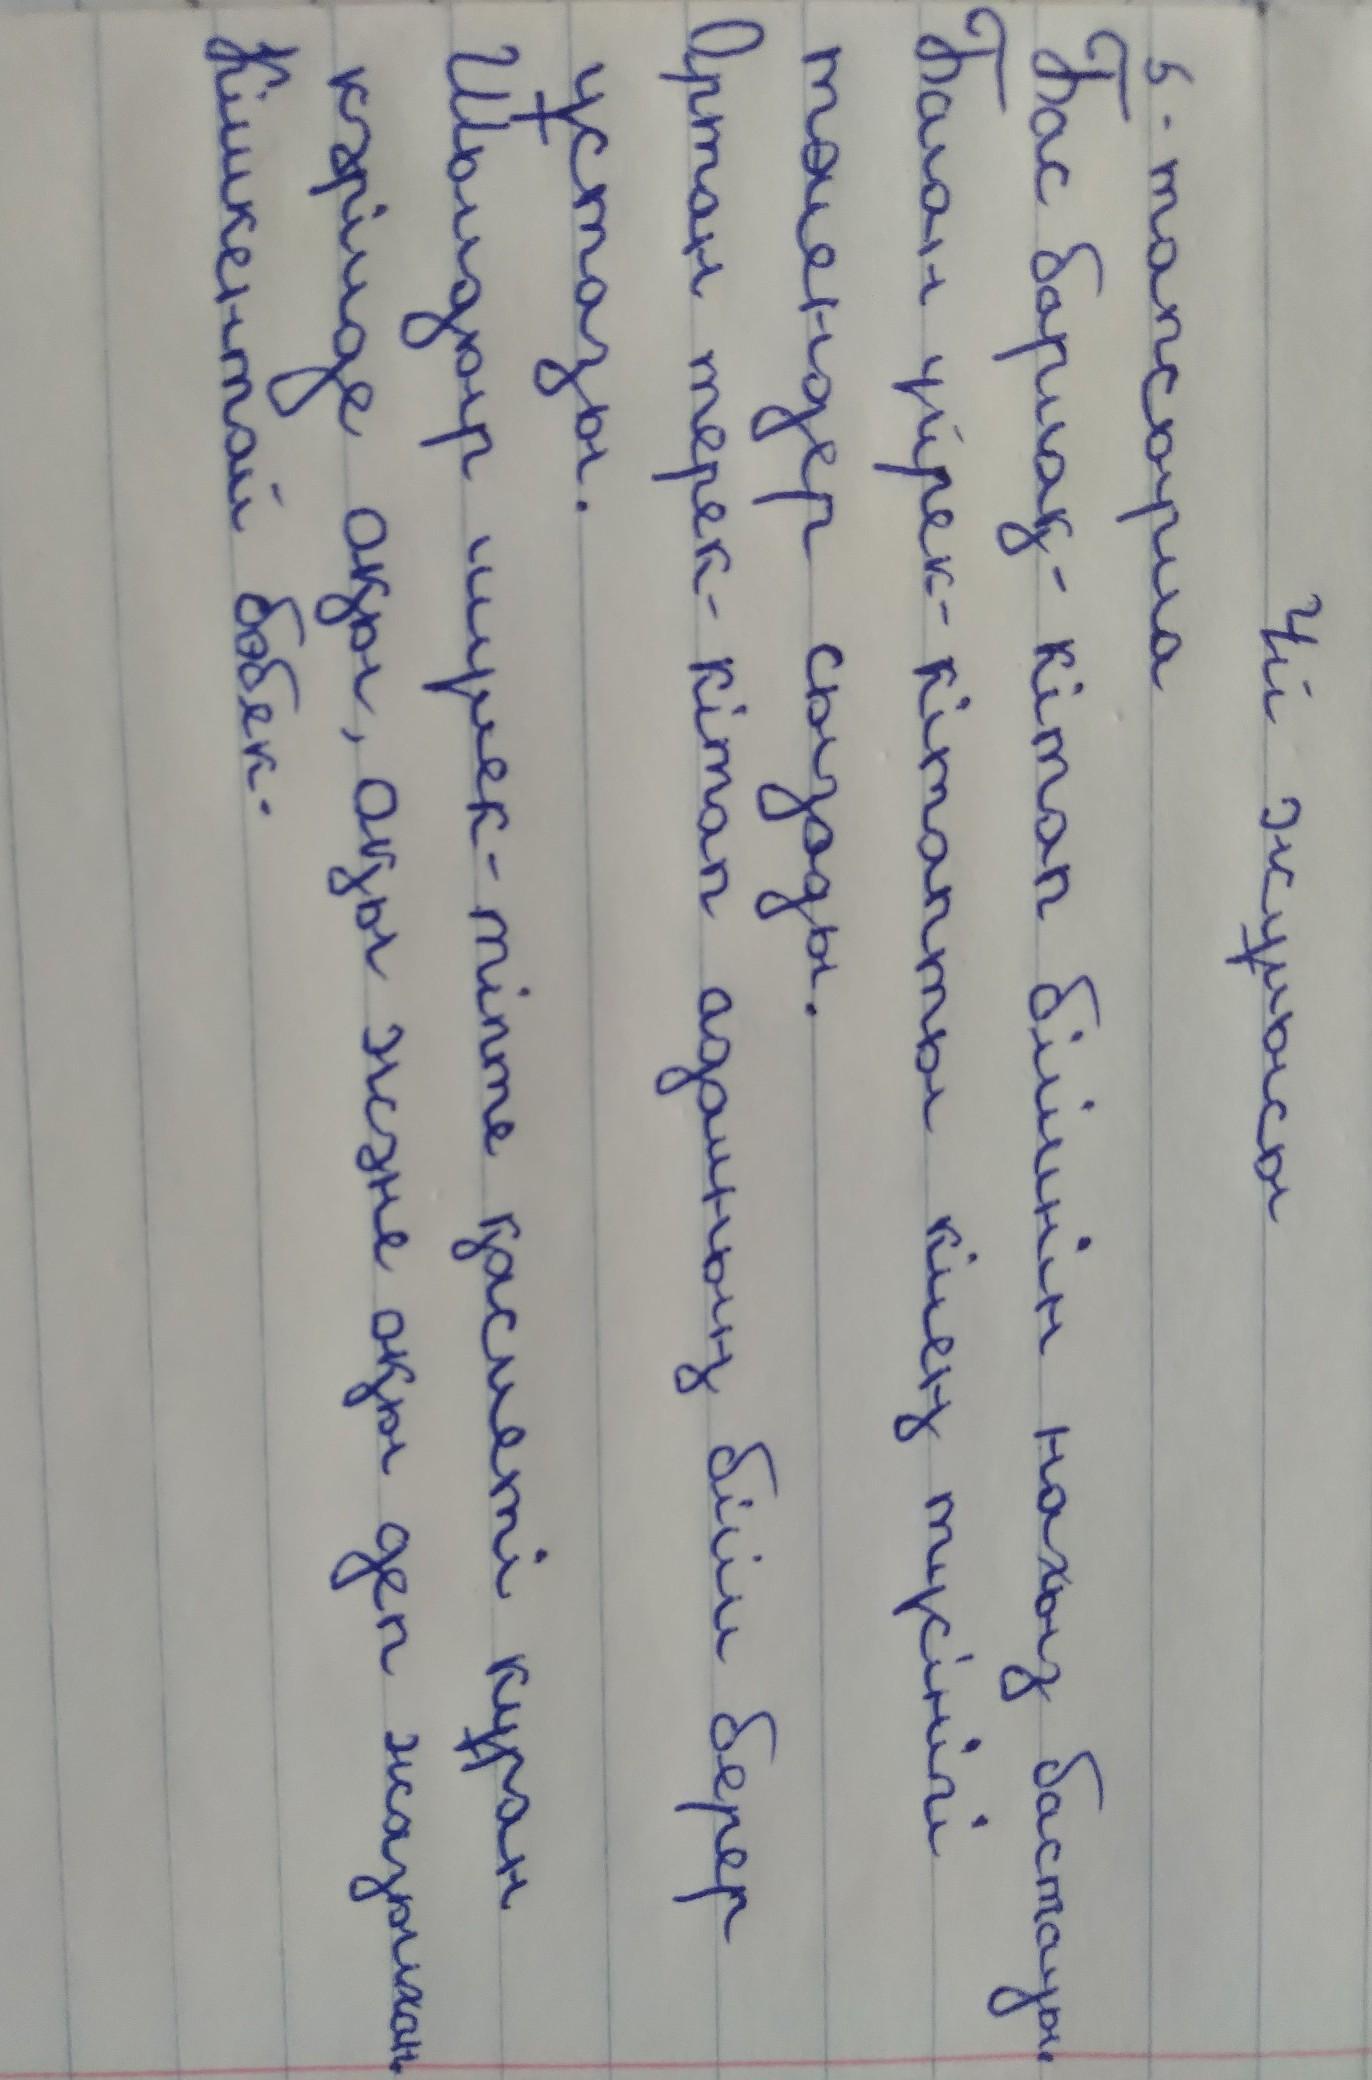 Үй жұмысы
5-тапсырма
Бас бармақ-кітап білімнің нағыз бастауы.
Балан үйрек-кітапты кілең түсінігі
төмендер сызады.
Ортан терек-кітап адамның білім берер
ұстазы.
Шылдыр шүмек-тіпте қасиеті құран
кәрімде оқы, оқы және оқы деп жазылған.
Кішкентай бөбек.